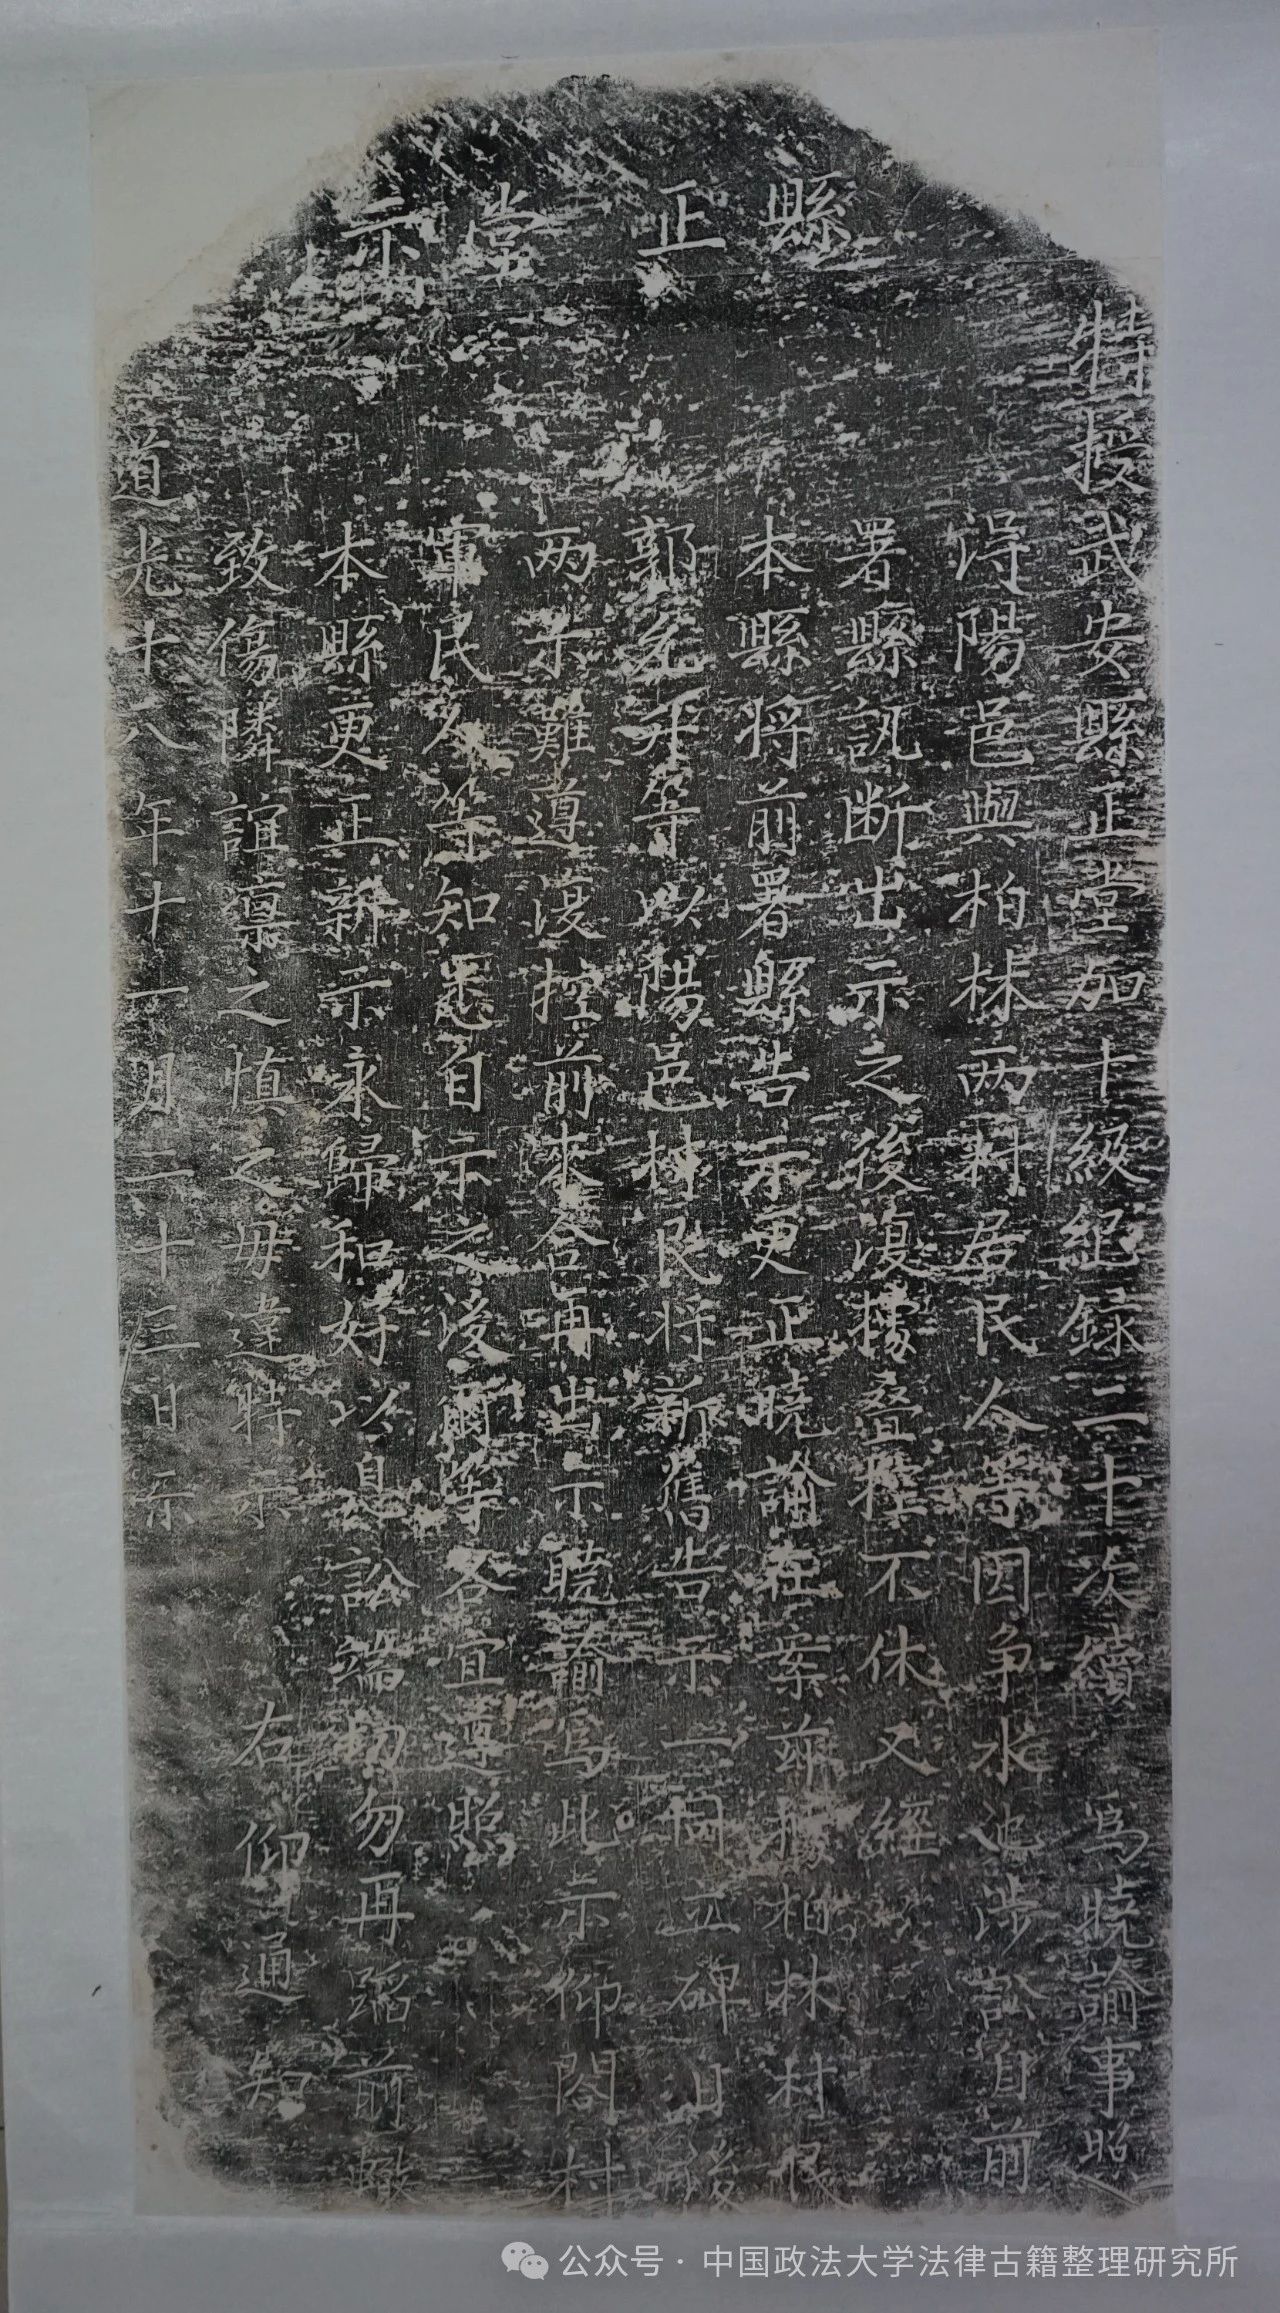 縣正堂示
特授武安縣正堂加十級紀録二十次續 爲曉諭事照
得陽邑與柏林两村居民人等因争水池涉訟自前
署縣訊断出示之後復據叠控不休又經
本縣將前署縣告示更正曉諭在案兹據柏林村民
郭 等以陽邑村民将新舊告示一同立碑日後
两示難遵復控前來合再出示曉諭爲此示仰閤村
軍民人等知悉自示之後爾等各宜遵照
本縣更正新示永歸和好以息訟端切勿再蹈前轍
致傷隣誼凛之慎之毋違特示
右仰通知
道光十八年十一月二十三日示
公众号·中国政法大学法律古籍整理研究所